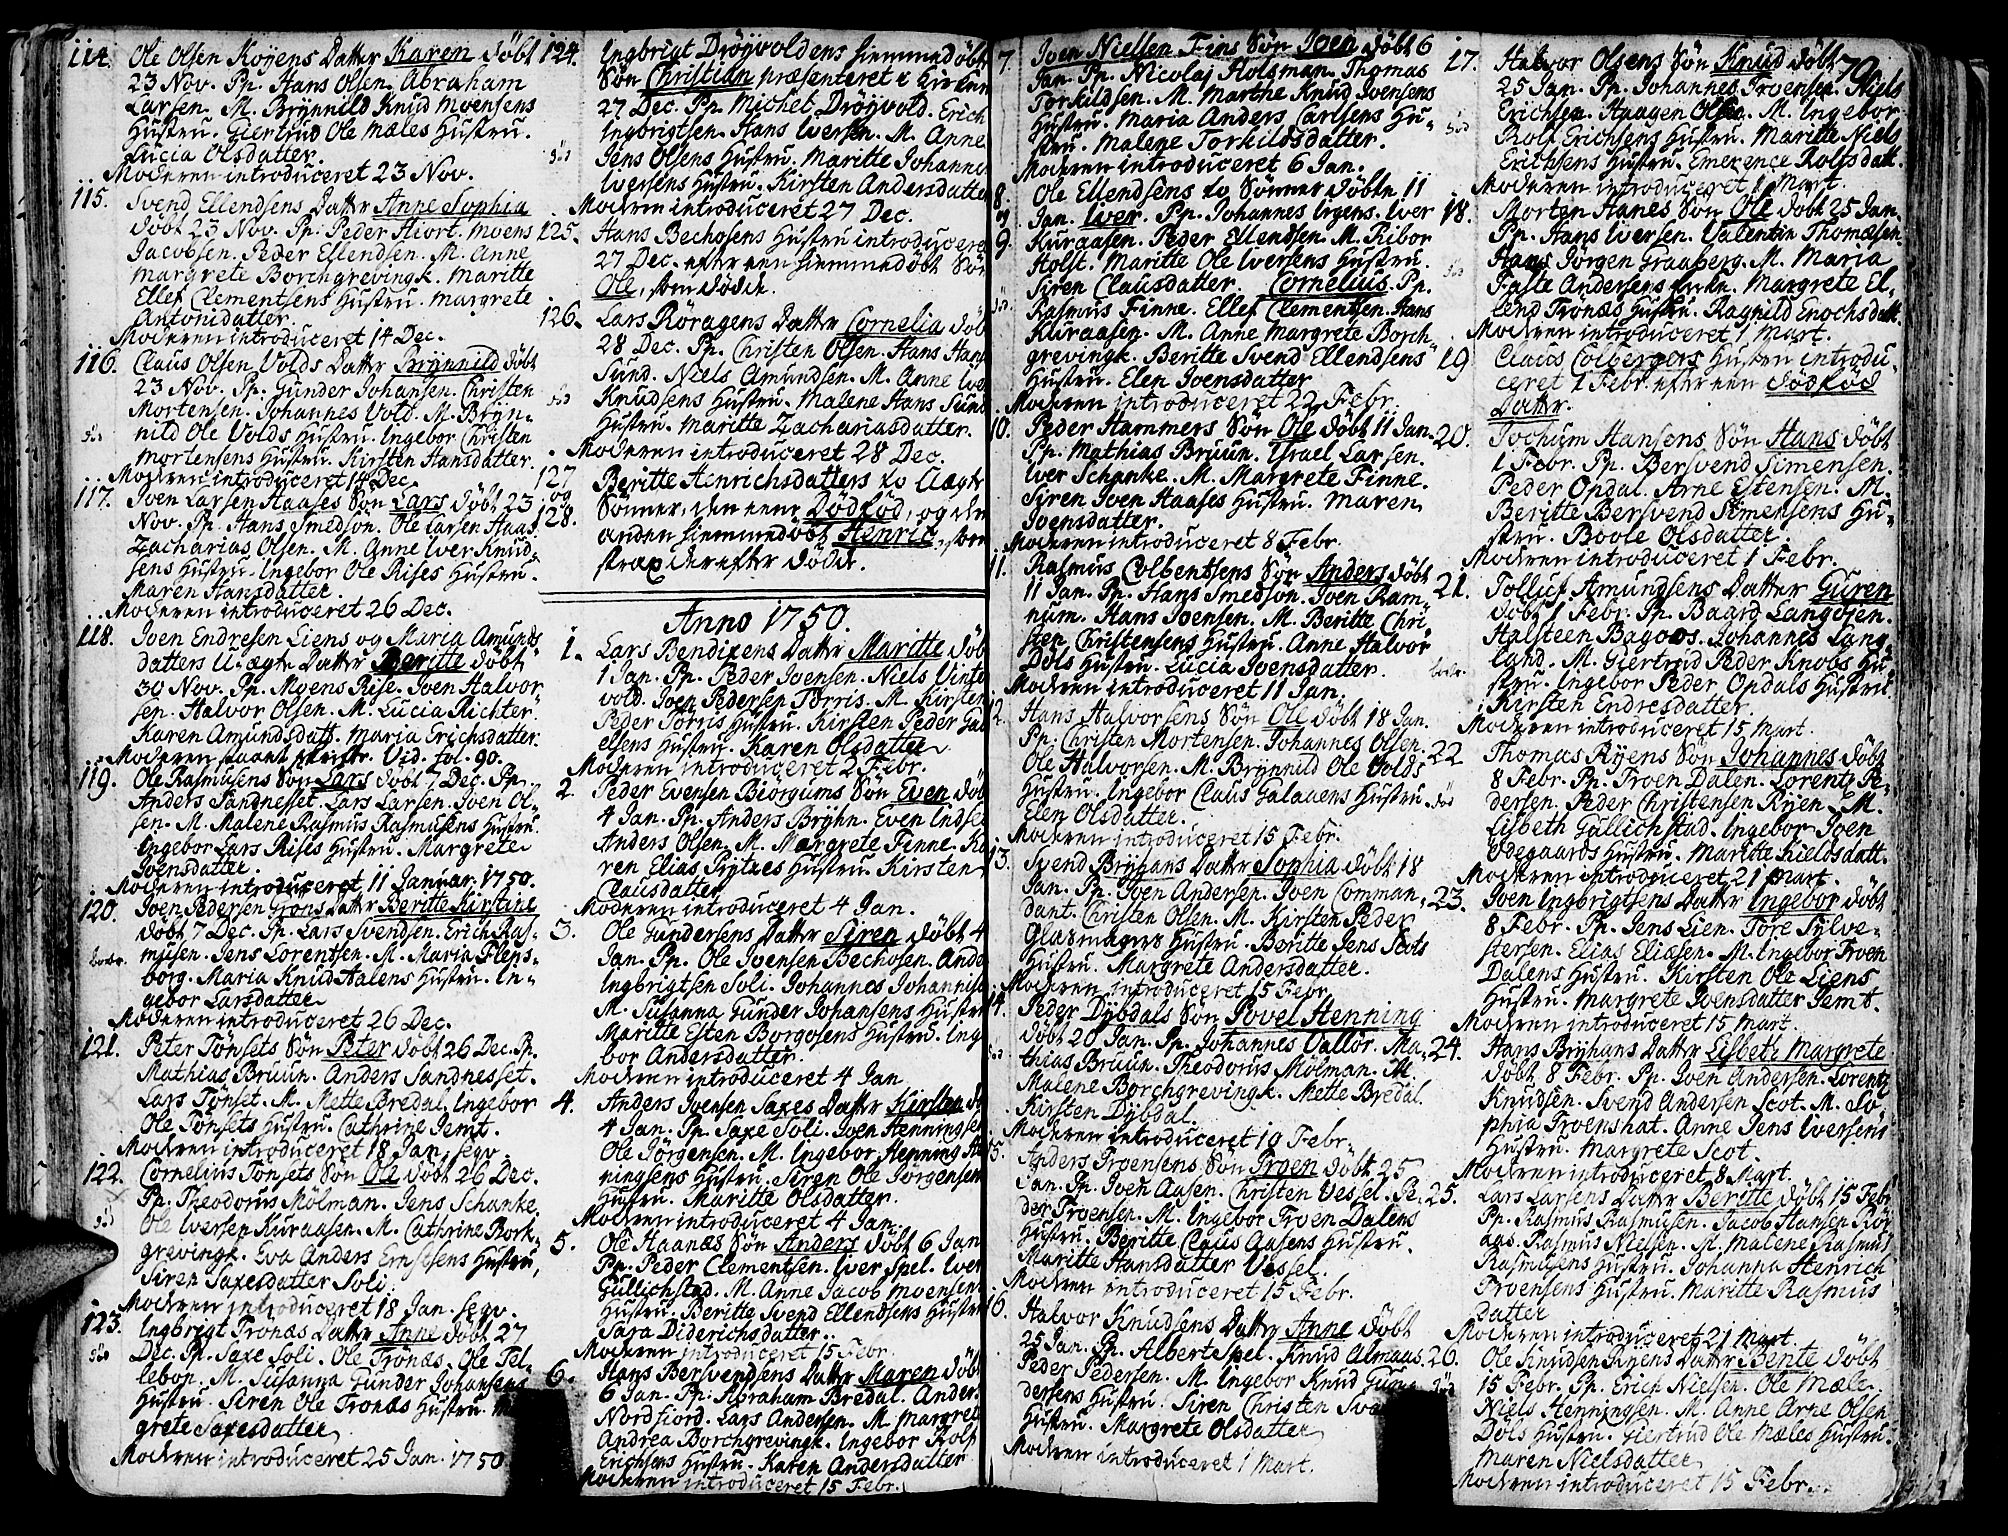 114. Ole Olsen Koyens Datter Karen döbt
23 Nov. Pp. Hans Olsen. Abraham
Larsen. M. Brynnild Knud Moensens
Hustru. Giertrud Ole Mæles Hustru.
Lucia Olsdatter.
Moderen introduceret 23 Nov.
115. Svend Ellendsens Datter Anne Sophia
döbt 23 Nov. Pp. Peder Hiort. Moens
Jacobsen. Peder Ellendsen. M. Anne
Margrete Borchgrevingk. Maritte
Ellef Clementsens Hustru. Margrete
Antonidatter.
Moderen introduceret 14 Dec.
116. Claus Olsen Volds Datter Brynnild döbt
23 Nov. Pp. Gunder Johansen. Christen
Mortensen. Johannes Vold. M. Bryn-
nild Ole Volds Hustru. Ingebor Christen
Mortensens Hustru. Kirsten Hansdatter.
Moderen introduceret 14 Dec.
117. Joen Larsen Haases Sön Lars döbt 23
Nov. Pp. Hans Smedson. Ole Larsen Haas.
Zacharias Olsen. M. Anne Iver Knud-
sens Hustru. Ingebor Ole Rises Hustru.
Maren Hansdatter.
Moderen introduceret 26 Dec.
118. Joen Endresen Liens og Maria Amunds
datters U-ægte Datter Beritte döbt
30 Nov. Pp. Moens Rise. Joen Halvor
sen. Halvor Olsen. M. Lucia Richter.
Karen Amundsdatt. Maria Erichsdatter.
Vid. fol. 90.
119. Ole Rasmusens Sön Lars döbt 7 Dec. Pp.
Anders Sandnesset. Lars Larsen. Joen Ol-
sen. M. Malene Rasmus Rasmusens Hustru.
Ingebor Lars Rises Hustru. Margrete
Joensdatter.
Moderen introduceret 11 Januar. 1750.
120. Joen Pedersen Grons Datter Beritte Kirstine
döbt 7 Dec. Pp. Lars Svendsen. Erich Ras-
musen. Jens Lorentsen. M. Maria Flens-
borg. Maria Knud Aalens Hustru. In-
gebor Larsdatter
Moderen introduceret 26 Dec.
121. Peter Tönsets Sön Peter döbt 26 Dec. Pp.
Mathias Bruun. Anders Sandnesset.
Lars Tönset. M. Mette Bredal. Ingebor
Ole Tönsets Hustru. Cathrine Jemt.
Moderen introduceret 18 Jan. seqv.
122. Cornelius Tönsets Sön Ole döbt 26 Dec.
Pp. Theodorus Mölman. Jens Schanke.
Ole Iversen Kuraasen. M. Cathrine Bork-
grevingk. Eva Anders Ernstsens Hustru,
Siren Saxesdatter Soli.
Moderen introduceret 18 Jan. seqv.
123. Ingbrigt Trönæs Datter Anne döbt 27
Dec. Pp. Saxe Soli. Ole Trönæs. Ole Tel-
lebon. M. Susanna Gunder Johansens
Hustru. Siren Ole Tronæs Hustru. Mar
grete Saxesdatter
Moderen introduceret 25 Jan. 1750
124. Ingbrigt Dröyvoldens hiemmedöbte
Sön Christian præsenteret i Kirken
27 Dec. Pp. Michel Dröyvold. Erich
Ingbrigtsen. Hans Iversen. M. Anne
Jens Olsens Hustru. Maritte Johannes
Iversens Hustru. Kirsten Andersdatter
Moderen introduceret 27 Dec.
125. Hans Bechosens Hustru introduceret
27 Dec. efter een hiemmedöbt Sön
Ole, som döde.
126. Lars Röragens Datter Cornelia döbt
28 Dec. Pp. Christen Olsen. Hans Hans
Sund. Niels Amundsen. M. Anne Iver
Knudsens Hustru. Malene Hans Sund
Hustru. Maritte Zachariasdatter.
Moderen introduceret 28 Dec.
127 og 128. Beritte Henrichsdatters to Uægte
Sönner, den eene Dödfød, og den
anden hiemmedöbt Henric, som
strax derefter döde.
Anno 1750.
1. Lars Bendixens Datter Maritte döbt
1 Jan. Pp. Peder Joensen. Niels Vinter
vold. Joen Pedersen Torris. M. Kirsten
Peder Torris Hustru. Kirsten Peder Gab
elsens Hustru. Karen Olsdatter
Moderen introduceret 2 Febr.
2. Peder Evensen Biorgums Sön Even döbt
4 Jan. Pp. Anders Bryhn. Even Endsen
Anders Olsen. M. Margrete Finne. Ka
ren Elias Prytzes Hustru. Kirsten
Clausdatter
Moderen introduceret 4 Jan.
3. Ole Gundersens Datter Siren döbt 4
Jan. Pp. Ole Joensen Bechosen. Anders
Ingbrigtsen Soli. Johannes Johannis
M. Susanna Gunder Johansens Hustru
Maritte Esten Borgosens Hustru. Inge
bor Andersdatter.
Moderen introduceret 4 Jan
4. Anders Joensen Saxes Datter Kirsten d
4 Jan. Pp. Saxe Soli. Joen Henningsen
Ole Jörgensen. M. Ingebor Henning He
ningsens Hustru. Siren Ole Jörgensens
Hustru. Maritte Olsdatter.
Moderen introduceret 4 Jan.
5. Ole Haanæs Sön Anders döbt 6 Jan
Pp. Peder Clementsen. Iver Spel. Iver
Gullichstad. M. Anne Jacob Moensens
Hustru. Beritte Svend Ellendsens Hustru
Sara Diderichsdatter.
Moderen introduceret 15 Febr.
6. Hans Bersvendsens Datter Maren döbt
6 Jan. Pp. Abraham Bredal. Anders
Nordfiord. Lars Andersen. M. Margret
Andrea Borchgrevingk. Ingebor Rolf
Erichsens Hustru. Karen Andersdatter
Moderen introduceret 15 Febr.
7. Joen Nielsen Fins Sön Joen döbt 6
Jan. Pp. Nicolaj Holsman. Thomas
Torkildsen. M. Marthe Knud Joensens
Hustru. Maria Anders Carlsens Hu-
stru. Malene Torkildsdatter.
Moderen introduceret 6 Jan.
8. og 9. Ole Ellendsens to Sönner döbte 11
Jan. Iver. Pp. Johannes Irgens. Iver
Kuraasen. Peder Ellendsen. M. Ribor
Holst. Maritte Ole Iversens Hustru.
Siren Clausdatter. Cornelius. Pp.
Rasmus Finne. Ellef Clementsen. Hans
Kuraasen. M. Anne Margrete Borch-
grevingk. Beritte Svend Ellendsens
Hustru. Elen Joensdatter
Moderen introduceret 22 Febr.
10. Peder Hammers Sön Ole döbt 11 Jan.
Pp. Mathias Bruun. Israel Larsen.
Iver Schanke. M. Margrete Finne.
Siren Joen Haases Hustru. Maren
Joensdatter.
Moderen introduceret 8 Febr.
11. Rasmus Colbentsens Sön Anders döbt
11 Jan. Pp. Hans Smedson. Joen Ram-
num. Hans Joensen. M. Beritte Chri-
sten Christensens Hustru. Anne Halvor
Döls Hustru. Lucia Joensdatter.
Moderen introduceret 11 Jan.
12. Hans Halvorsens Sön Ole döbt 18 Jan.
Pp. Christen Mortensen. Johannes Olsen.
Ole Halvorsen. M. Brynnild Ole Volds
Hustru. Ingebor Claus Galaaens Hustru
Elen Olsdatter.
Moderen introduceret 15 Febr.
13. Svend Bryhans Datter Sophia döbt 18
Jan. Pp. Joen Andersen. Joen Comman-
dant. Christen Olsen. M. Kirsten Peder
Glasmagers Hustru. Beritte Jens Scots
Hustru. Margrete Andersdatter.
Moderen introduceret 15 Febr.
14. Peder Dybdals Sön Povel Henning
döbt 20 Jan. Pp. Johannes Vallör. Ma-
thias Bruun. Theodorus Molman. M.
Malene Borchgrevingk. Mette Bredal.
Kirsten Dybdal.
Moderen introduceret 19 Febr.
15. Anders Troensens Sön Troen döbt 25
Jan. Pp. Joen Aasen. Christen Vessel. Pe-
der Troensen. M. Ingebor Troen Dalens
Hustru. Beritte Claus Aasens Hustru.
Maritte Hansdatter Vessel.
Moderen introduceret 15 Febr.
16. Halvor Knudsens Datter Anne döbt
25 Jan. Pp. Albert Spel. Knud Almaas.
Peder Pedersen. M. Ingebor Knud Gun
dersens Hustru. Siren Christen Sva
Hustru. Margrete Olsdatter
Moderen introduceret 1 Mart.
70
17. Halvor Olsens Sön Knud döbt
25 Jan. Pp. Johannes Troensen. Niels
Erichsen. Haagen Olsen. M. Ingebor
Rolf Erichsens Hustru. Maritte Niels
Erichsens Hustru. Emerence Rolfsdatt.
Moderen introduceret 1 Mart.
18. Morten Hanes Sön Ole döbt 25 Jan.
Pp. Hans Iversen. Valentin Thomæsen.
Hans Jörgen Graaberg. M. Maria
Faste Andersens Enke. Margrete El-
lend Trönæs Hustru. Ragnild Enochsdatt.
Moderen introduceret 1 Mart.
19 Claus Colbergers Hustru introdu-
ceret 1 Febr. efter een dödfød
Datter.
20. Jochum Hansens Sön Hans döbt
1 Febr. Pp. Bersvend Simensen.
Peder Opdal. Arne Estensen. M.
Beritte Bersvend Simensens Hu-
stru. Boole Olsdatter.
Moderen introduceret 1 Febr.
21. Tolluf Amundsens Datter Guren
döbt 1 Febr. Pp. Baard Langöjen.
Halsteen Bagoos. Johannes Lang
land. M. Giertrud Peder Knobs Hu
stru. Ingebor Peder Opdals Hustru.
Kirsten Endresdatter.
Moderen introduceret 15 Mart.
22 Thomas Ryens Sön Johannes döbt
8 Febr. Pp. Troen Dalen. Lorentz Pe-
dersen. Peder Christensen Ryen. M.
Lisbeth Gullichstad. Ingebor Joen
Ödegaards Hustru. Maritte Kieldsdatt.
Moderen introduceret 21 Mart.
23. Joen Ingbrigtsens Datter Ingebor döbt
8 Febr. Pp. Jens Lien. Tore Sylve-
stersen. Elias Eliasen. M. Ingebor Troen
Dalens Hustru. Kirsten Ole Liens
Hustru. Margrete Joensdatter Jemt.
Moderen introduceret 15 Mart.
24. Hans Bryhans Datter Lisbeth Margrete
döbt 8 Febr. Pp. Joen Andersen. Lorentz
Knudsen. Svend Andersen Scot. M. So-
phia Troenshat. Anne Jens Iversens
Hustru. Margrete Scot.
Moderen introduceret 8 Mart.
25. Lars Larsens Datter Beritte döbt 15 Febr
Pp. Rasmus Rasmusen. Jacob Hansen Rör
aas. Rasmus Nielsen. M. Malene Rasmus
Rasmusens Hustru. Johanna Henrich
Troensens Hustru. Maritte Rasmus
datter
Moderen introduceret 21 Mart.
26. Ole Knudsen Ryens Datter Bente döbt
15 Febr. Pp. Erich Nielsen. Ole Mæle.
Niels Henningsen. M. Anne Arne Olsen
Döls Hustru. Giertrud Ole Mæles Hustru.
Maren Nielsdatter
Moderen introduceret 15 Febr.